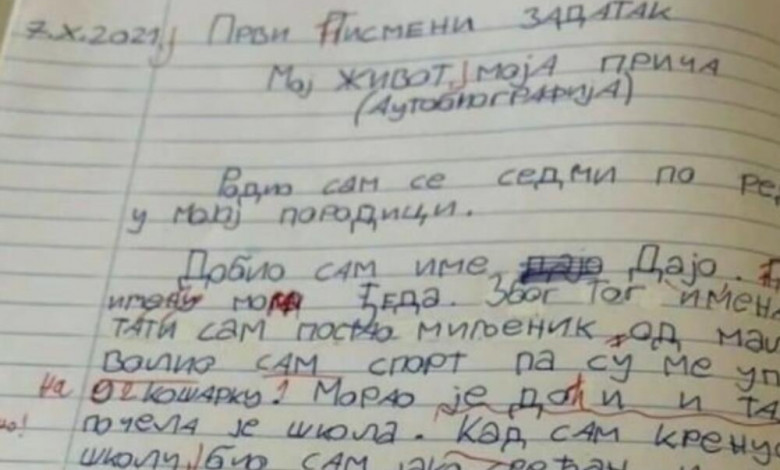 7.X.2021. Први Писмени ЗАДАТАК
Мој ЖИВОТ, мојА ПРИЧА
(АутобиографијА)
Родио сам се седми по ред
у мојој породици.
Добио сам име Дајо.
имену мога ђеда. Због тог имена
тати сам постао миљеник од мал
волио сам спорт па су ме уп
на кошарку. Морао је доћи и та
почела је школа. Кад сам крену
школу, био сам јако срећан